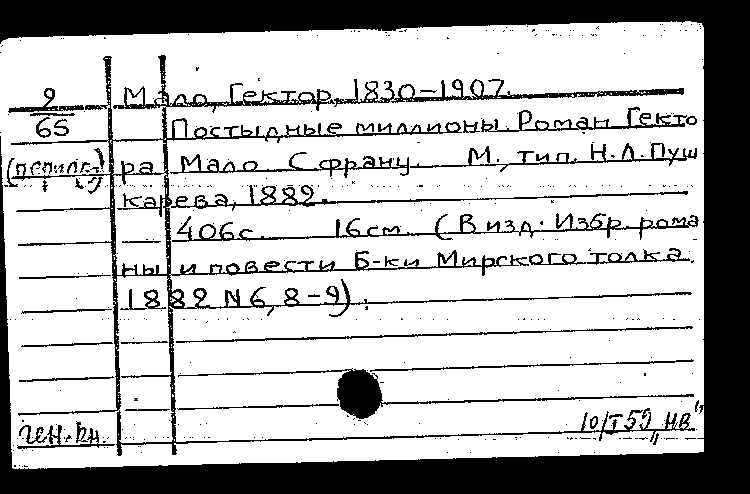 9 Мало, Гектор, 1830-1907.
65 Постыдные миллионы. Роман Гекто
ра Мало С франц. М., тип. Н.Л.Пуш
карева, 1882.
406с. 16см. (В изд. Избр. рома
ны и повести Б-ки Мирского толка.
1882 N 6, 8-9).
10/I 59 "НВ"